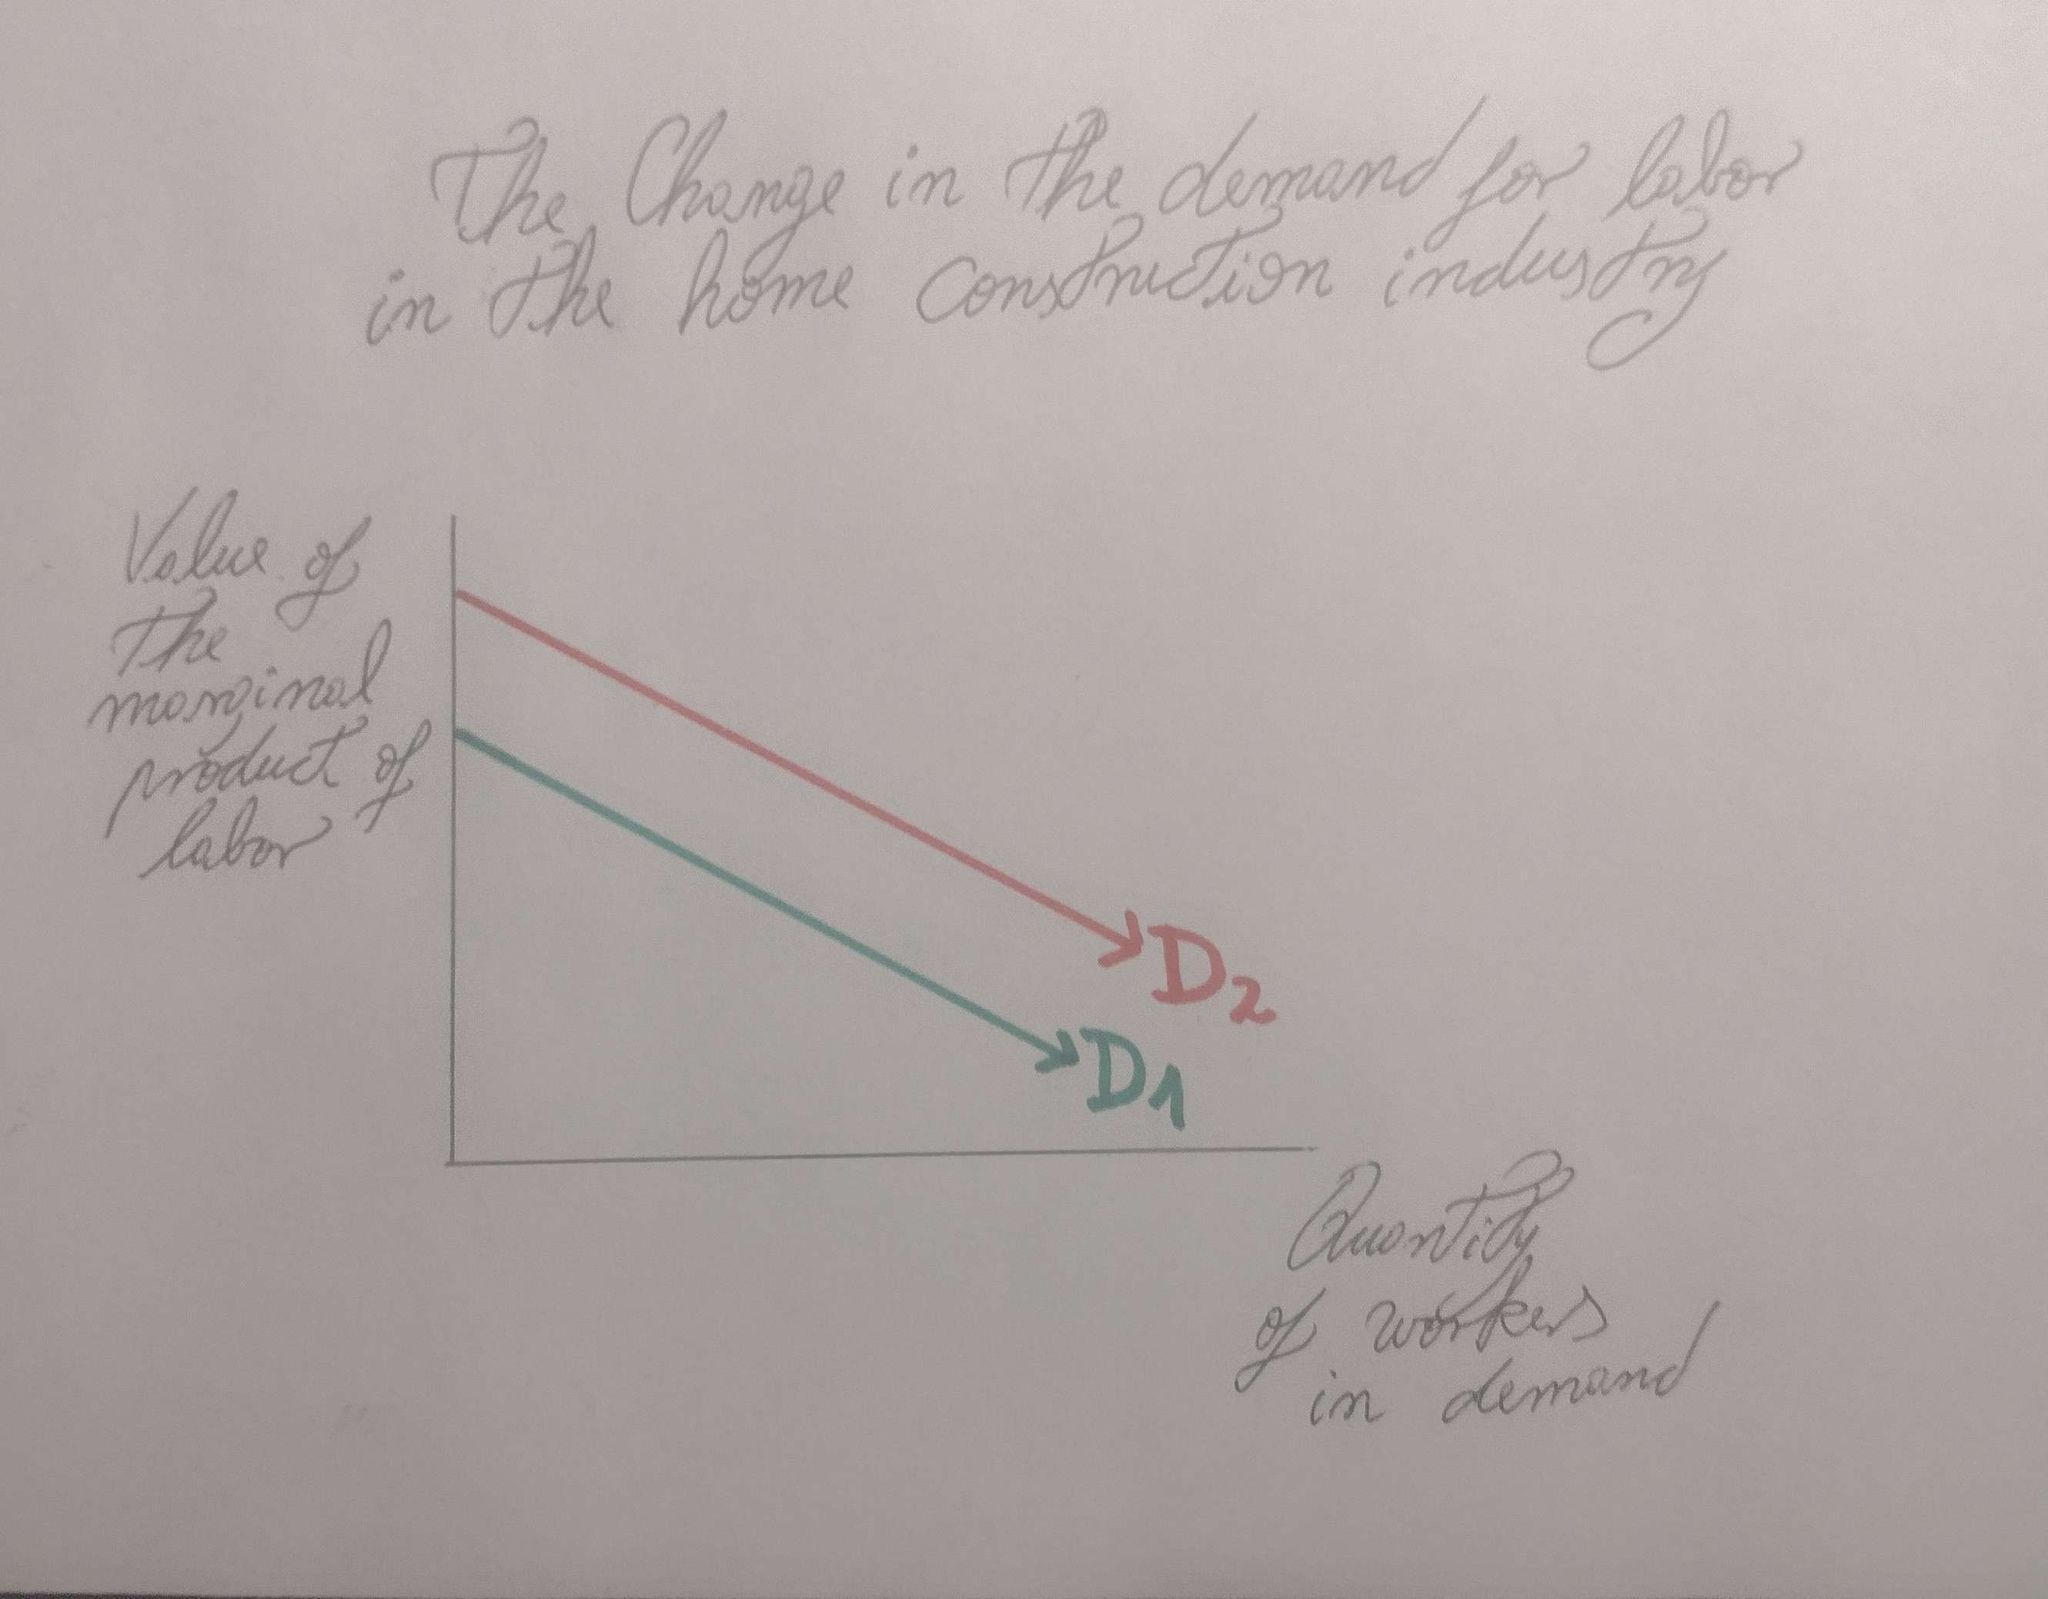 The Change in the demand for labor
in the home construction industry
Value of
the
marginal
product of
labor
D2
D1
Quantity
of workers
in demand